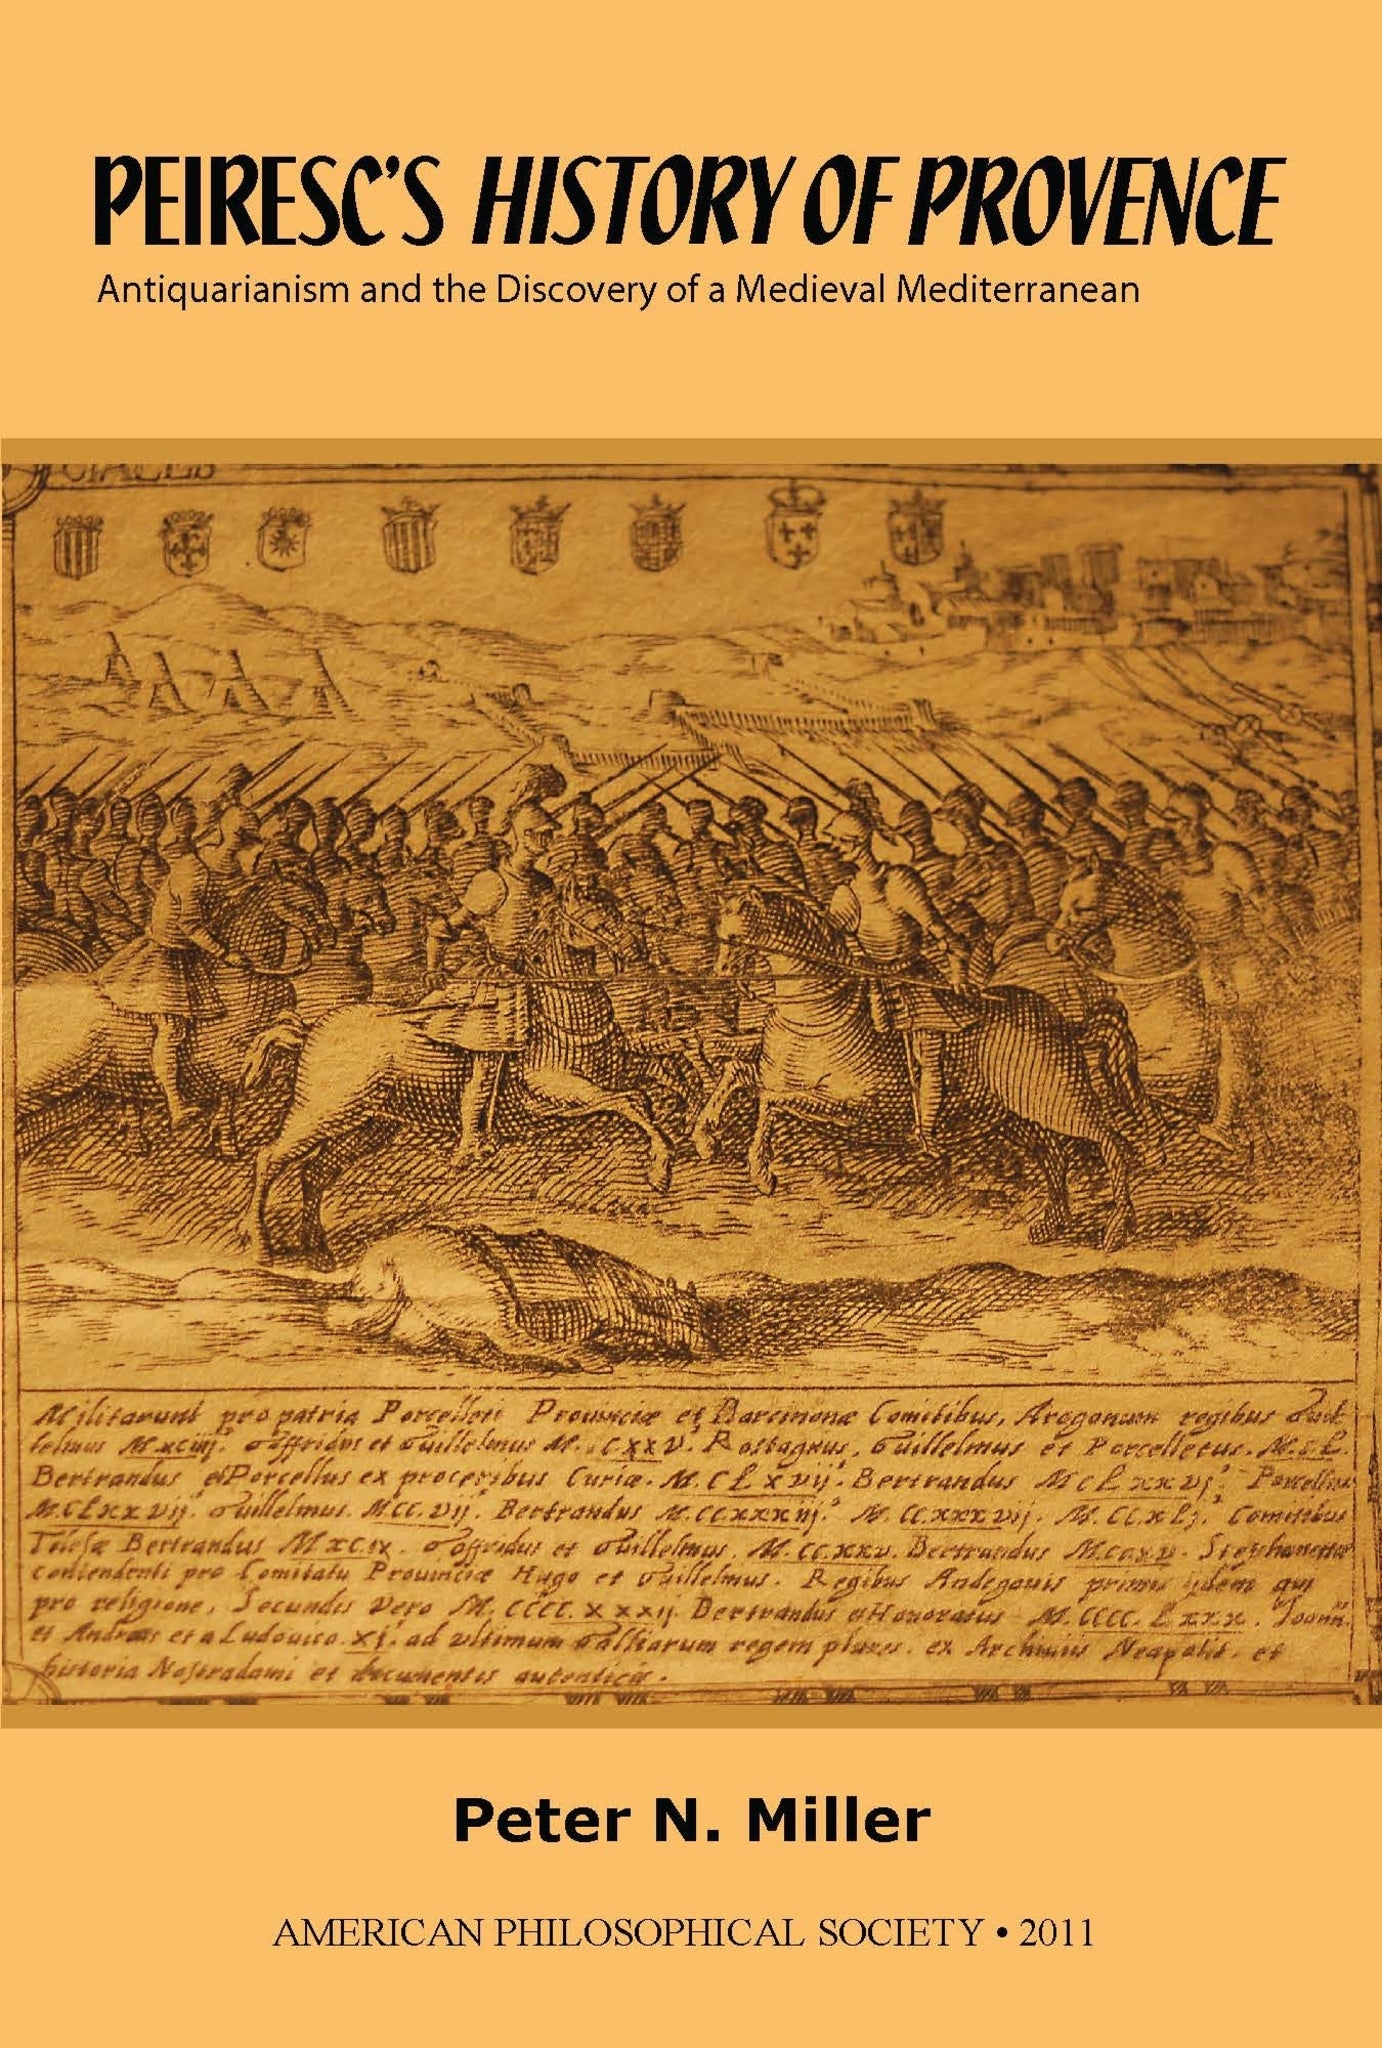 PEIRESC'S HISTORY OF PROVENCE
Antiquarianism and the Discovery of a Medieval Mediterranean
Militarunt pro patria Porcelleti Prouinciæ et Barcinonæ Comitibus, Aragonum regibus Guil
lelmus M.xciiij. Gaffridus et Guillelmus M. .cxxv. Rostagnus, Guillelmus et Porcelletus. M.c.L.
Bertrandus et Porcellus ex proceribus Curiæ. M.CLxvij. Bertrandus McLxxvj. Porcellus
M.CLxxvij. Guillelmus. MCC.vij. Bertrandus M.CCxxxiij. M.CCxxxvij. M.CC.xLj. Comitibus
Bertrandus Mxc.ix. Goffridus et Guillelmus. M.ccxxv. Bertrandus
contendenti pro Comitatu Prouinciæ Hugo et Guillelmus. Regibus Andegauis primis ijdem qui
pro religione, Secundis vero M.CCCC.xxxij. Bertrandus et Honoratus M.CCCC.Lxxx. Joann.
et Andreas et a Ludouico.xj. ad vltimum Galliarum regem plures. ex Archiuis Neapolit. et
historia Nostradami et documentis autenticis.
Peter N. Miller
AMERICAN PHILOSOPHICAL SOCIETY • 2011